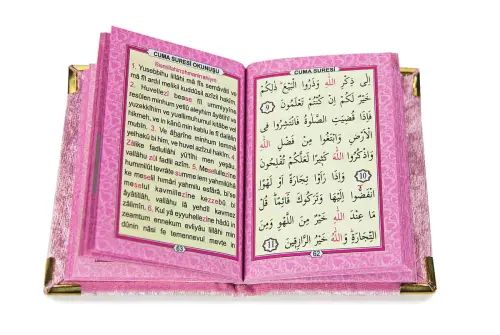 CUMA SURESİ OKUNUŞU
Bismillâhirrahmânirrahîm
1. Yüsebbihu lillâhi mâ fîs semâvâti ve
mâ fîl ardıl melikil kuddûsil azîzil hakîm.
2. Huvellezî bease fîl ummiyyîne
resûlen minhum yetlû aleyhim âyâtihî ve
yuzekkîhim ve yuallimuhumul kitâbe vel
hikmeh, ve in kânû min kablu le fî dalâlin
mubîn. 3. Ve âharîne minhum lemmâ
yelhakû bi him, ve huvel azîzul hakîm. 4.
Zâlike fadlullâhi yu'tîhi men yeşâu,
vallâhu zûl fadlil azîm. 5. Meselullezîne
hummilût tevrâte summe lem yahmilûhâ
ke meselil hımâri yahmilu esfârâ, bi'se
meselul kavmillezîne kezzebû bi
âyâtillâh, vallâhu lâ yehdîl kavmez
zâlimîn. 6. Kul yâ eyyuhellezîne hâdû in
zeamtum ennekum evliyâu lillâhi min
dûnin nâsi fe temennevul mevte in
63
CUMA SURESİ
إِلَى ذِكْرِ اللّٰهِ وَذَرُوا الْبَيْعَ ذٰلِكُمْ
خَيْرٌ لَكُمْ إِنْ كُنْتُمْ تَعْلَمُونَ ﴿9﴾
فَإِذَا قُضِيَتِ الصَّلٰوةُ فَانْتَشِرُوا فِي
الْأَرْضِ وَابْتَغُوا مِنْ فَضْلِ اللّٰهِ
وَاذْكُرُوا اللّٰهَ كَثِيرًا لَعَلَّكُمْ تُفْلِحُونَ
﴿10﴾ وَإِذَا رَأَوْا تِجَارَةً أَوْ لَهْوًا
انْفَضُّوا إِلَيْهَا وَتَرَكُوكَ قَائِمًا قُلْ
مَا عِنْدَ اللّٰهِ خَيْرٌ مِنَ اللَّهْوِ وَمِنَ
التِّجَارَةِ وَاللّٰهُ خَيْرُ الرَّازِقِينَ ﴿11﴾
62